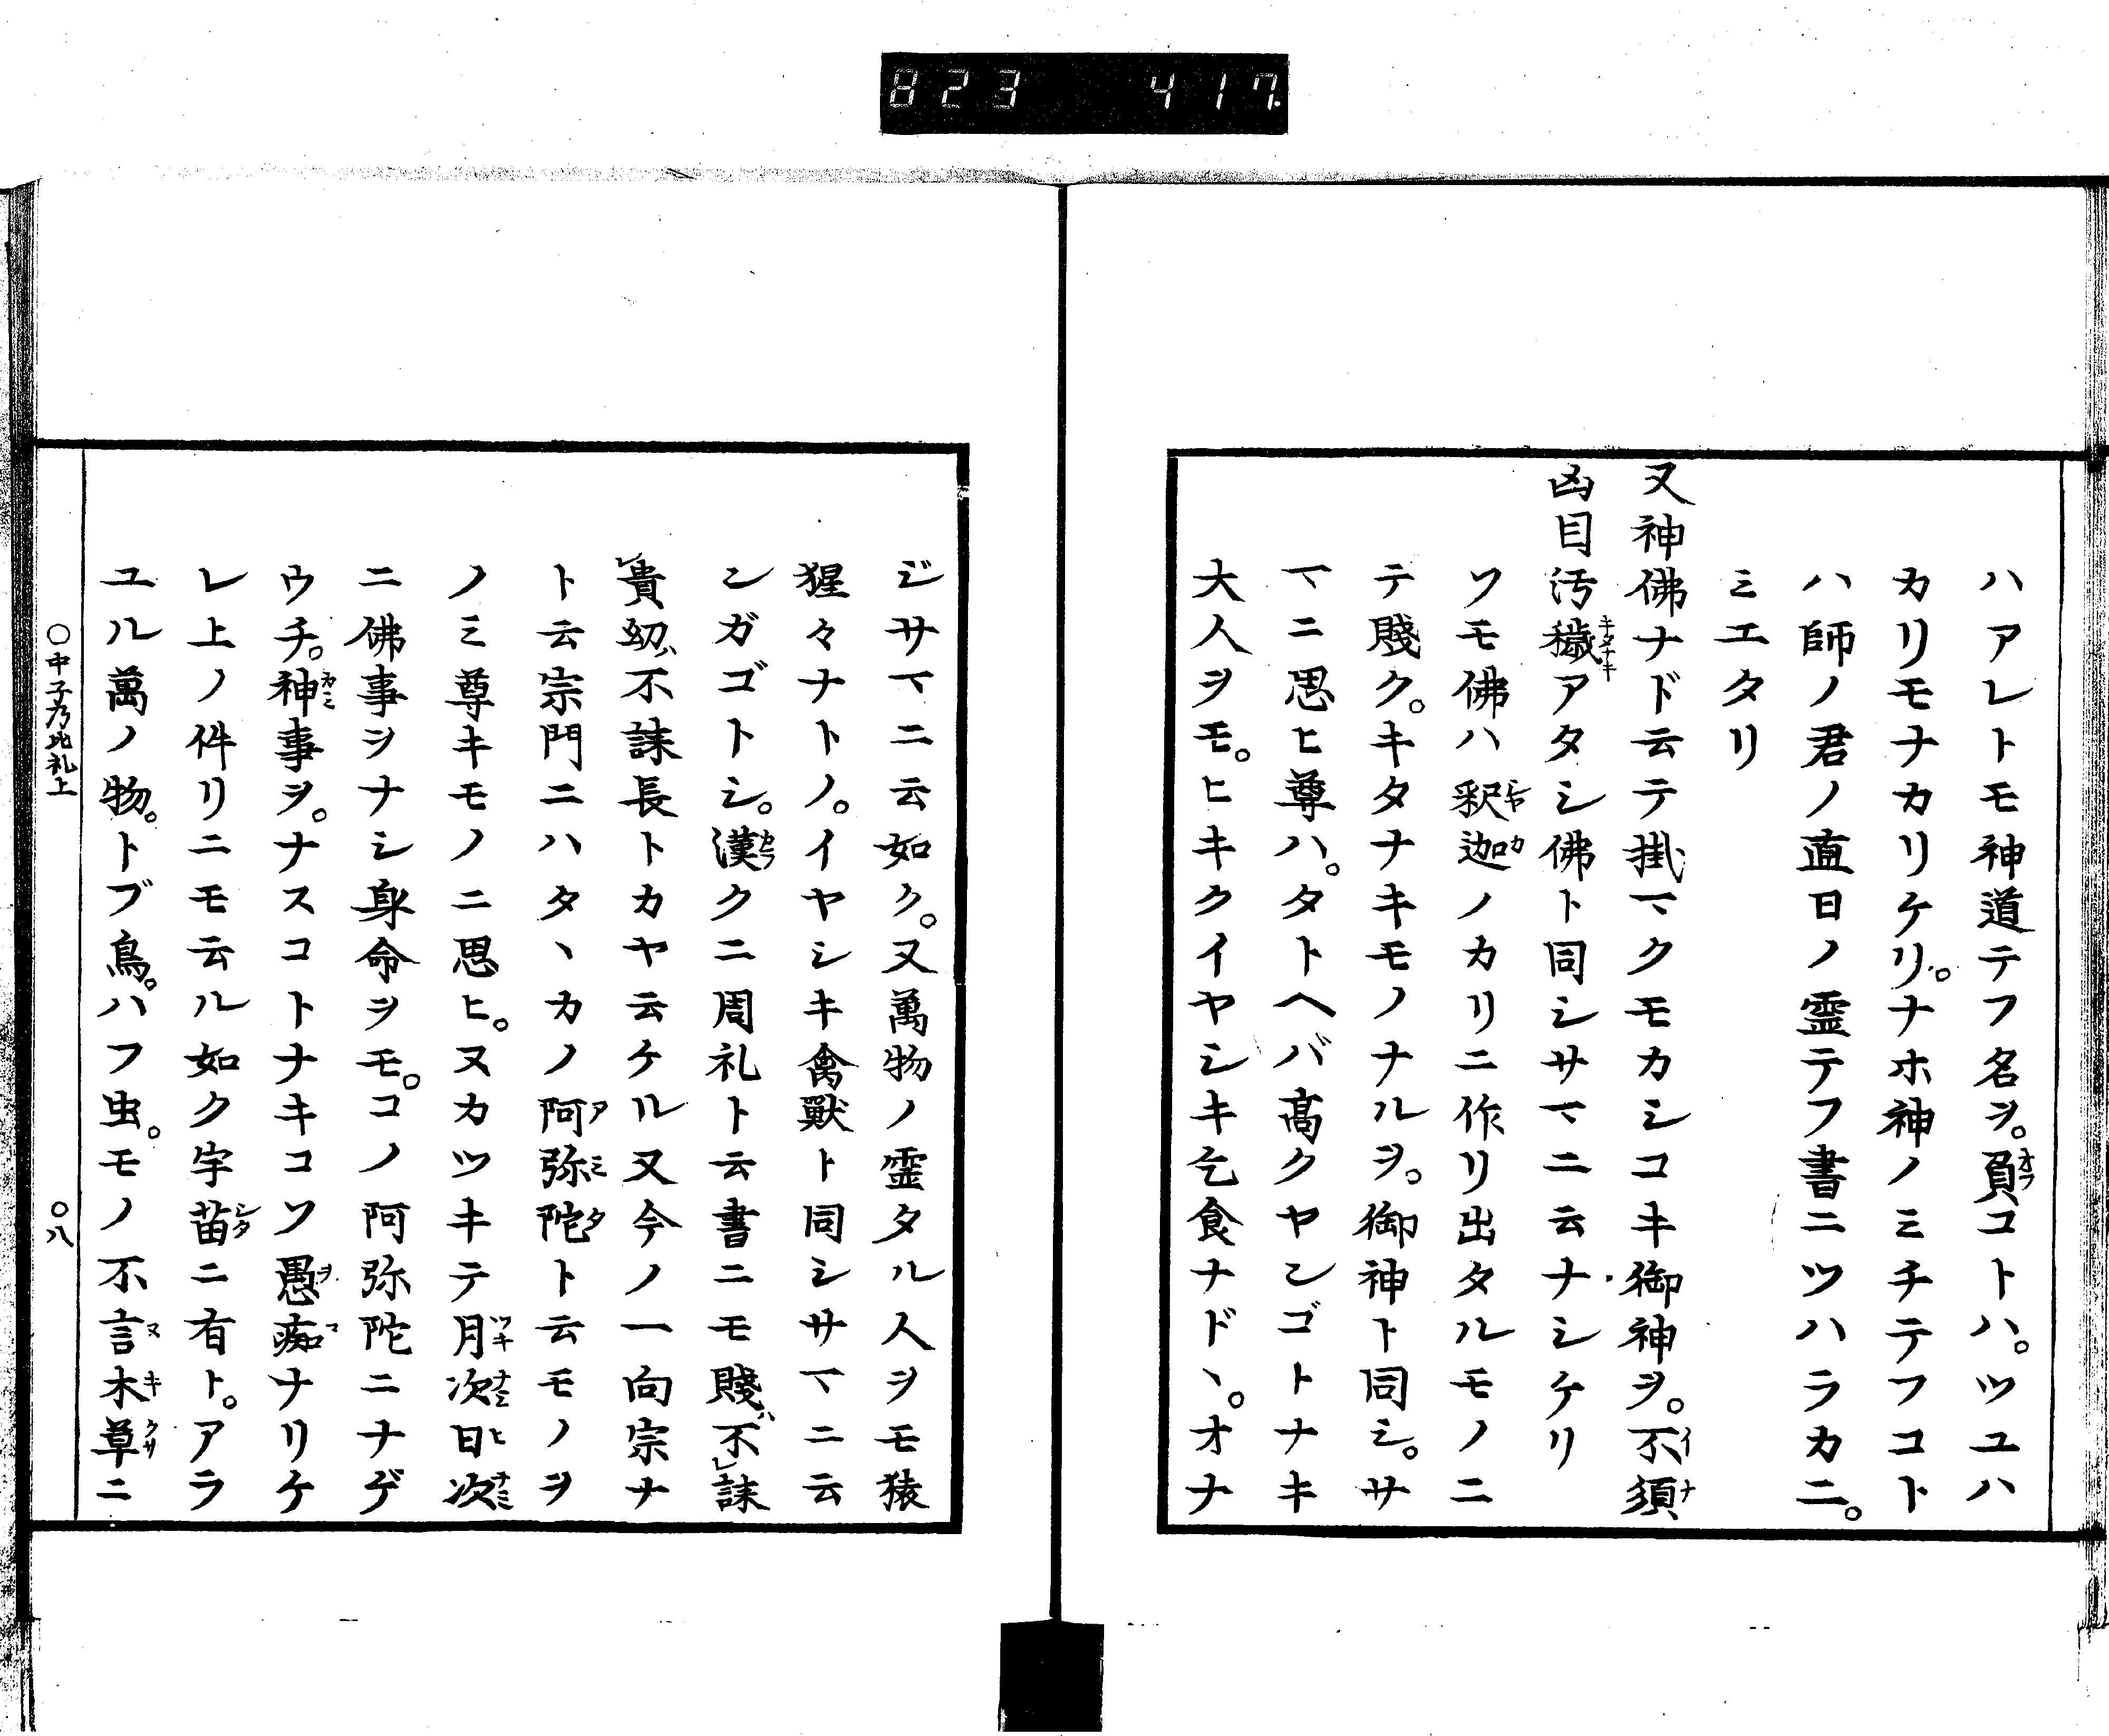 823 417.
ハアレトモ神道テフ名ヲ。負コトハ。ツユハ
カリモナカリケリ。ナホ神ノミチテフコト
ハ師ノ君ノ直日ノ霊テフ書ニツハラカニ。
ミエタリ
又神佛ナドヽ云テ掛マクモカシコキ御神ヲ。不須
凶目汚穢アタシ佛ト同シサマニ云ナシケリ
ソモ佛ハ釈迦ノカリニ作リ出タルモノニ
テ賤ク。キタナキモノナルヲ。御神ト同シ。サ
マニ思ヒ尊ハ。タトヘバ髙クヤンゴトナキ
大人ヲモ。ヒキクイヤシキ乞食ナドヽ。オナ
ジサマニ云如ク。又萬物ノ霊タル人ヲモ猿
猩々ナトノ。イヤシキ禽獸ト同シサマニ云
ンガゴトシ。漢クニ周礼ト云書ニモ賤ハ不レ誄
貴幼ハ不誄長トカヤ云ケル又今ノ一向宗ナ
ト云宗門ニハタヽカノ阿弥陀ト云モノヲ
ノミ尊キモノニ思ヒ。ヌカツキテ月次日次
ニ佛事ヲナシ身命ヲモ。コノ阿弥陀ニナゲ
ウチ。神事ヲ。ナスコトナキコソ愚痴ナリケ
レ上ノ件リニモ云ル如ク宇苗ニ有ト。アラ
ユル萬ノ物。トブ鳥。ハフ虫。モノ不言木草ニ
〇中子乃比礼上 〇八